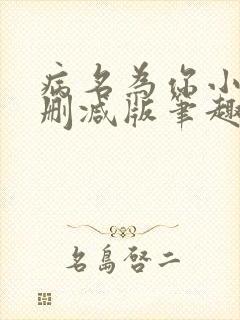 病名为你小
删减版笔趣
名島啓二